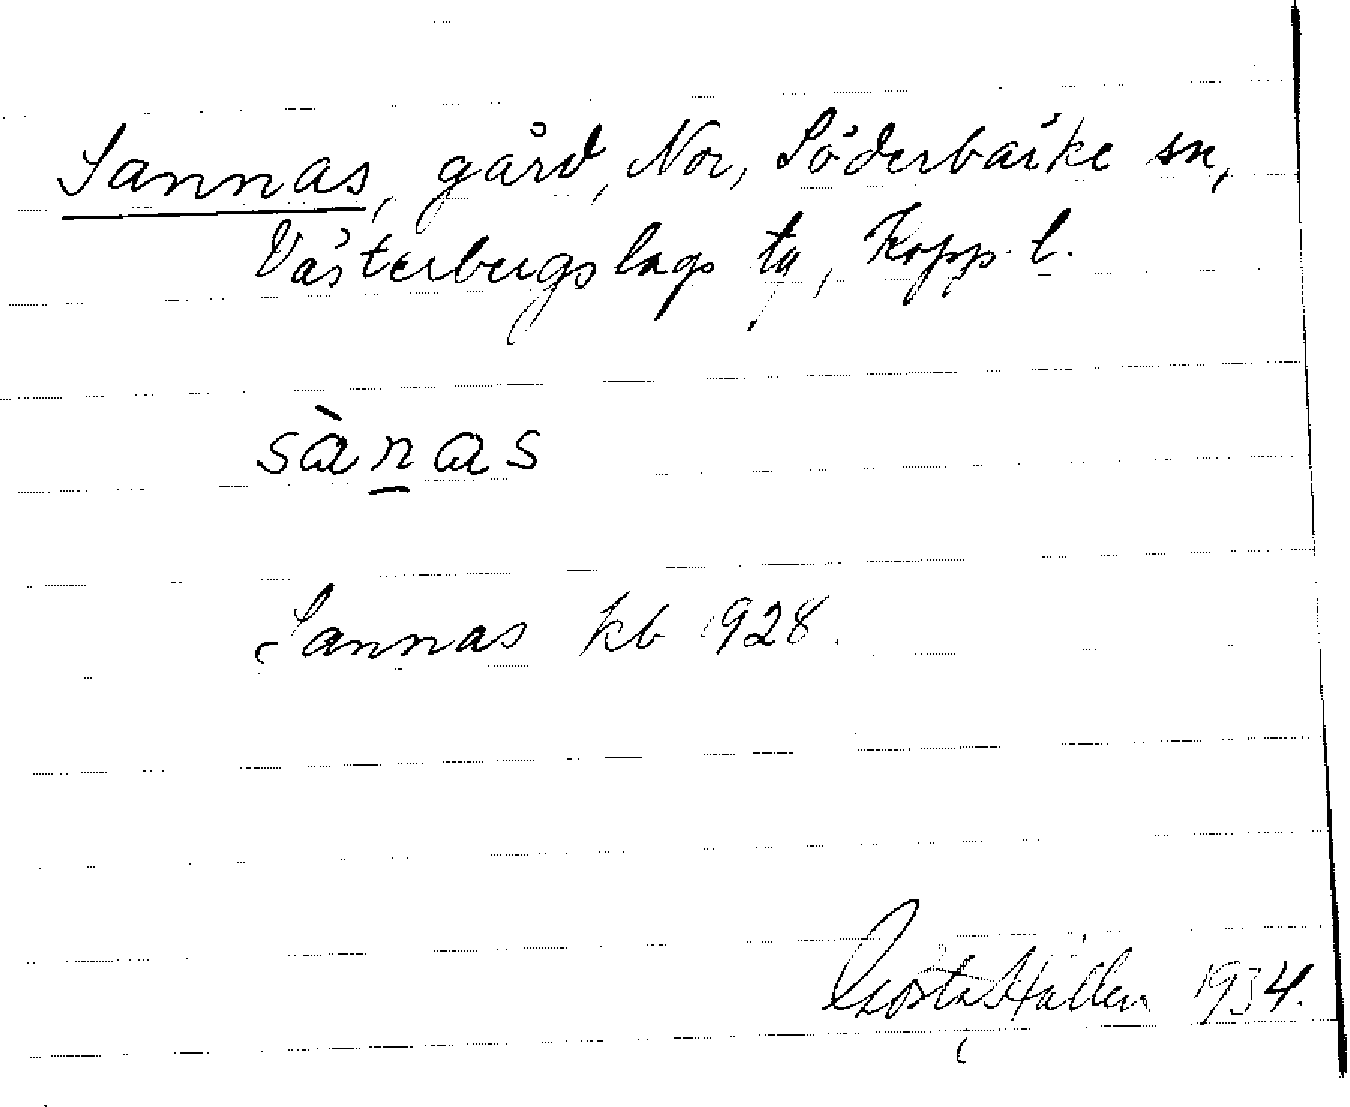 Sannas, gård, Nor, Söderbärke sn,
Västerbergslags tg, Kopp. l.
sàn̲as
Sannas kb 1928.
Gösta Hallen 1934.